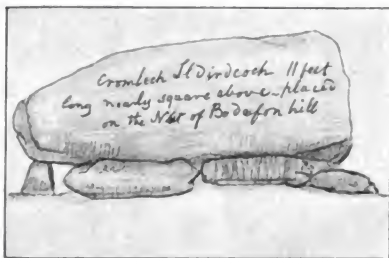 Cromlech Ildirdcoch 11 feet
long nearly square above - placed
on the NW of Bodafon hill